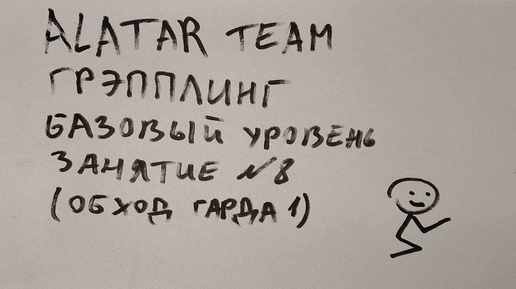 ALATAR TEAM
ГРЭППЛИНГ
БАЗОВЫЙ УРОВЕНЬ
ЗАНЯТИЕ №8
(ОБХОД ГАРДА 1)